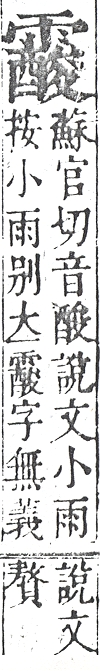 䨘
蘇官切音酸說文小雨
按小雨别大䨘字無義
說文
贅